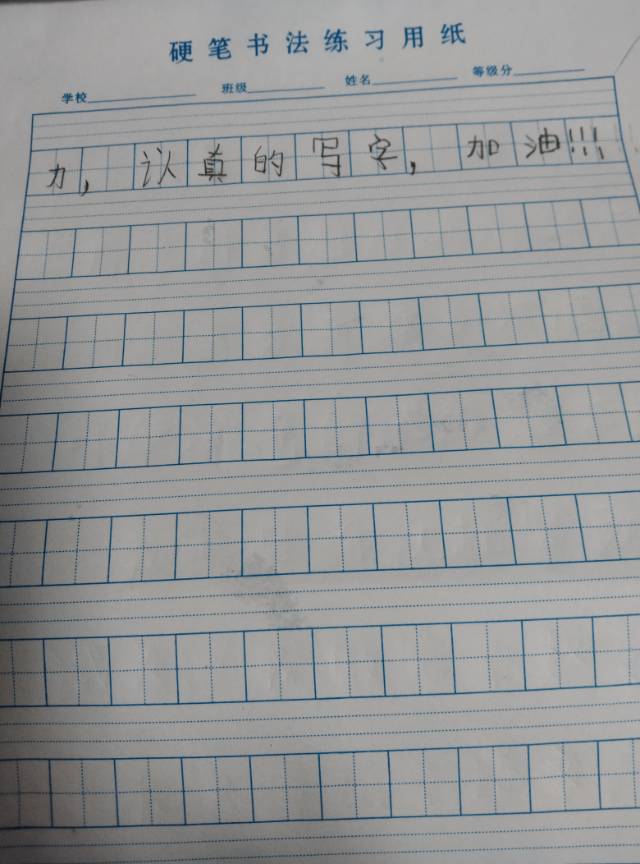 硬笔书法练习用纸
学校 班级 姓名 等级分
力，认真的写字，加油!!!